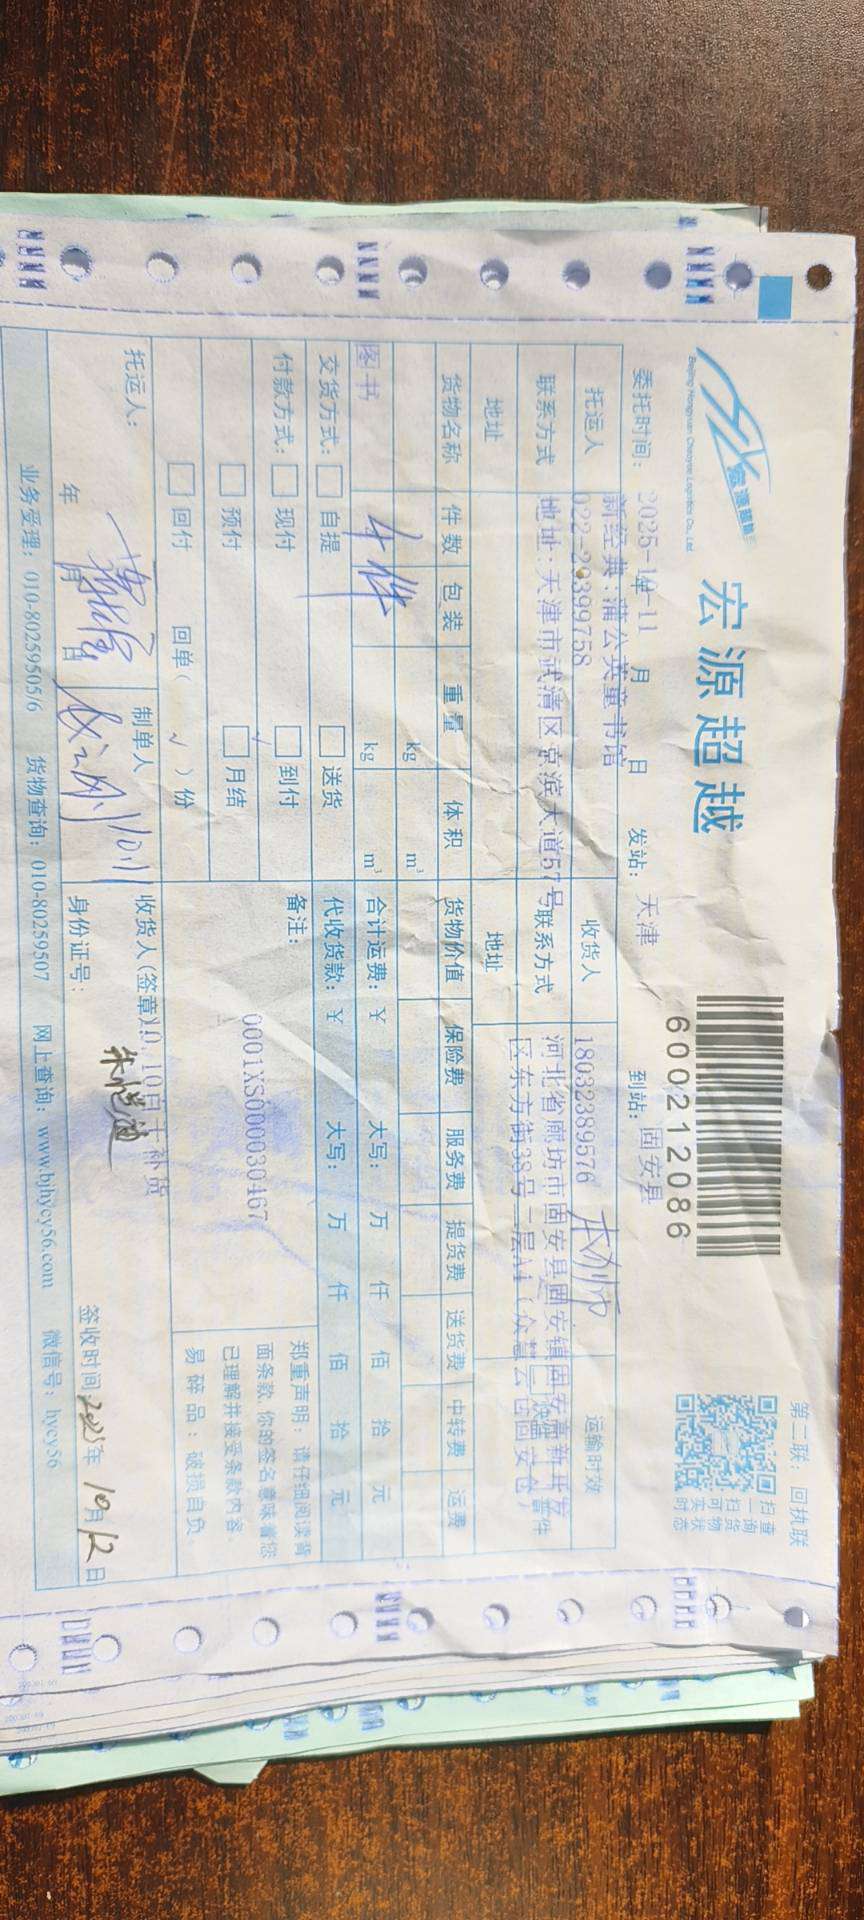 第二联：回执联
宏源超越
宏源超越
Beijing Hongyuan Chaoyue Logistics Co., Ltd
600212086
扫一扫可实时
查询货物状态
委托时间： 年 月 日 发站： 天津 到站： 固安县
托运人 新经典:蒲公英童书馆 收货人 运输时效
联系方式 022-29399758 联系方式 18032389576
地址 地址:天津市武清区京滨大道57号 地址 河北省廊坊市固安县固安镇固安高新开发
区东方街38号二层A1（众慧云仓固安仓）
普件
货物名称 件数 包装 重量 体积 货物价值 保险费 服务费 提货费 送货费 中转费 运费
kg m³
图书 4件 kg m³ 合计运费：￥ 大写： 万 仟 佰 拾 元
交货方式： 自提 送货 代收货款：￥ 大写： 万 仟 佰 拾 元
付款方式： 现付 到付 备注：
预付 月结 0001XS000030467
回付 回单（ √ ）份
郑重声明：请仔细阅读背
面条款,你的签名意味着您
已理解并接受条款内容。
易碎品：破损自负
托运人： 制单人 收货人(签章)
年 月 日 10.11 身份证号： 签收时间 2025年 10月12日
业务受理：010-80259505/6 货物查询：010-80259507 网上查询：www.bjhycy56.com 微信号：hycy56